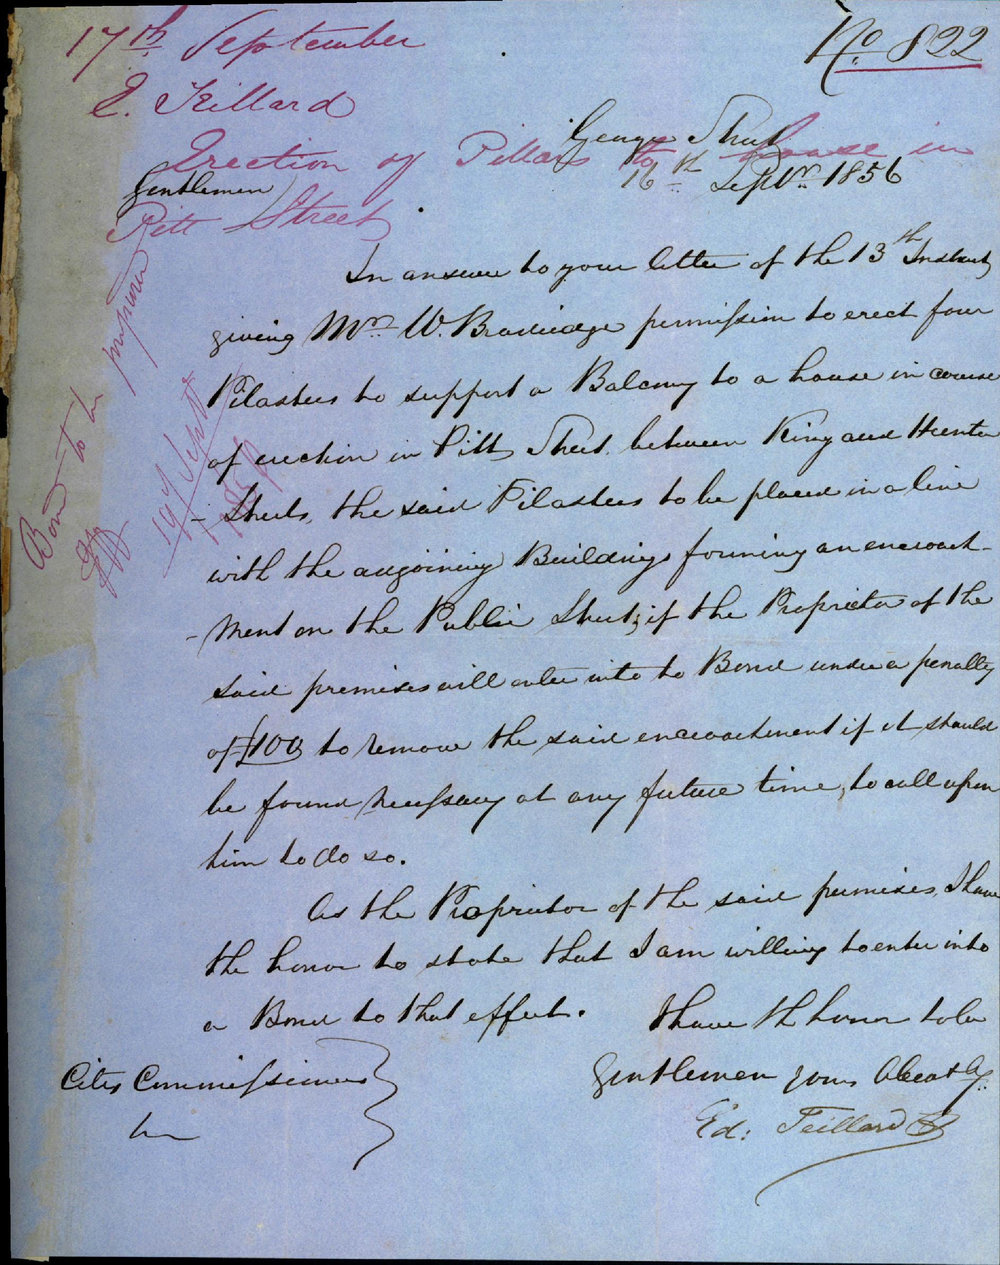 17th September
No 822
E. Teillard
George Street
Erection of Pillars to house in
16th Septr 1856
Gentlemen
Pitt Street
In answer to your letter of the 13th Instant
giving Mr W. permission to erect four
Pilasters to support a Balcony to a house in course
of erection in Pitt Street between King and Hunter
- Streets, the said Pilasters to be placed in a line
with the adjoining Buildings forming an encroach-
- ment on the Public Street; if the Proprietor of the
said premises will enter into to Bond under a penalty
of £100 to remove the said encroachment if it should
be found necessary at any future time, to call upon
him to do so.
As the Proprietor of the said premises, I have
the honor to state that I am willing to enter into
a Bond to that effect.
I have th honor to be
Gentlemen yours
Ed: Teillard
City Commissioners
Bond to be prepared
19 Septr
1856